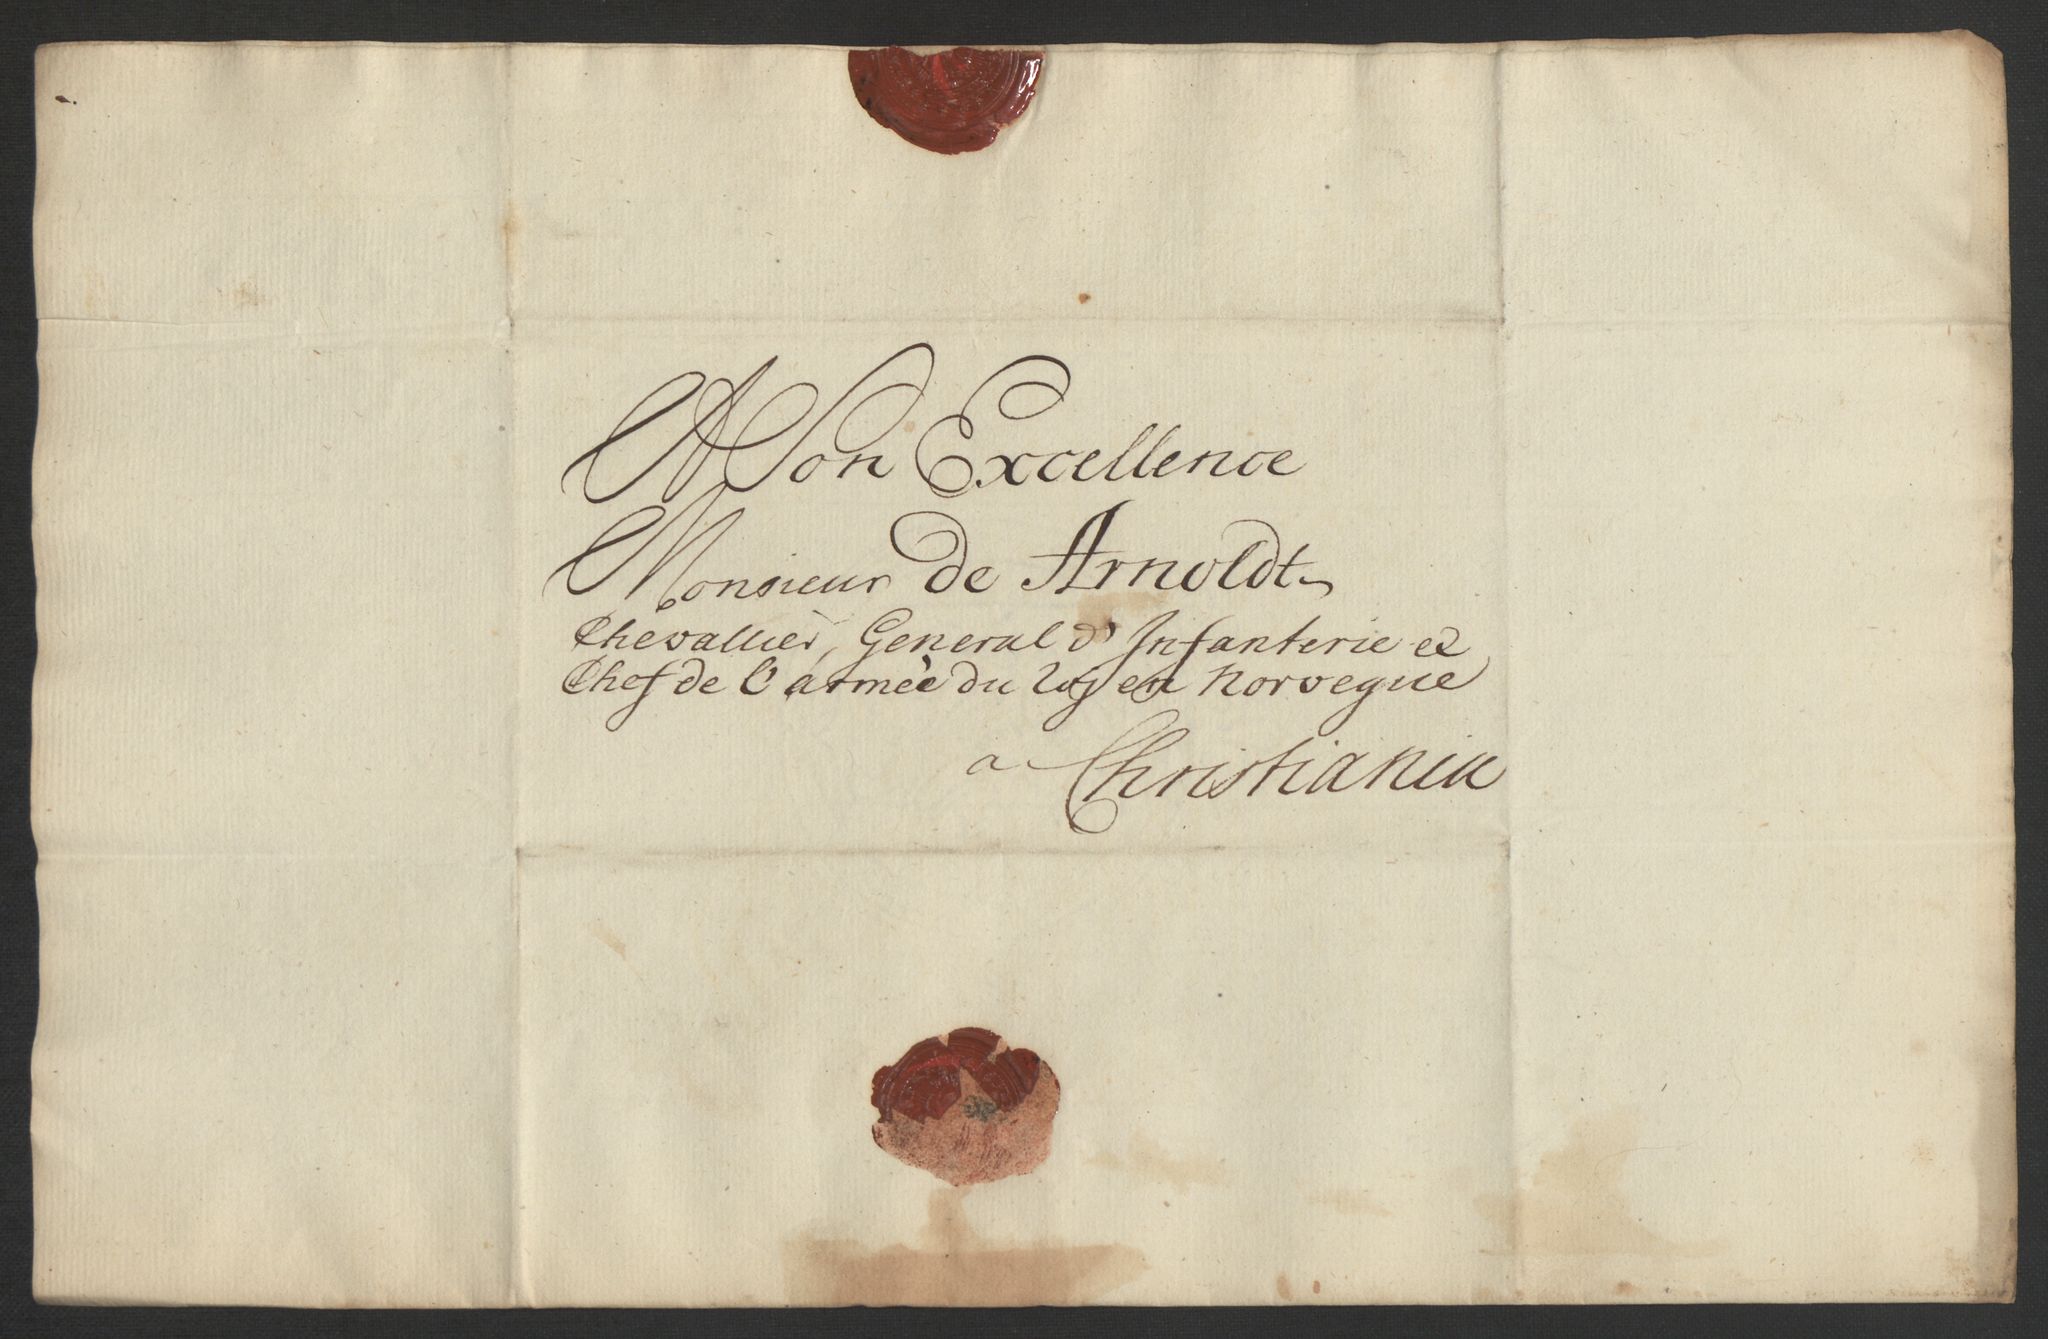 A Son Excellence
Monsieur de Arnoldt
Chevallier, General d'Infanterie et
Chef de l'armèe du Roy en Norvegue
a Christiania